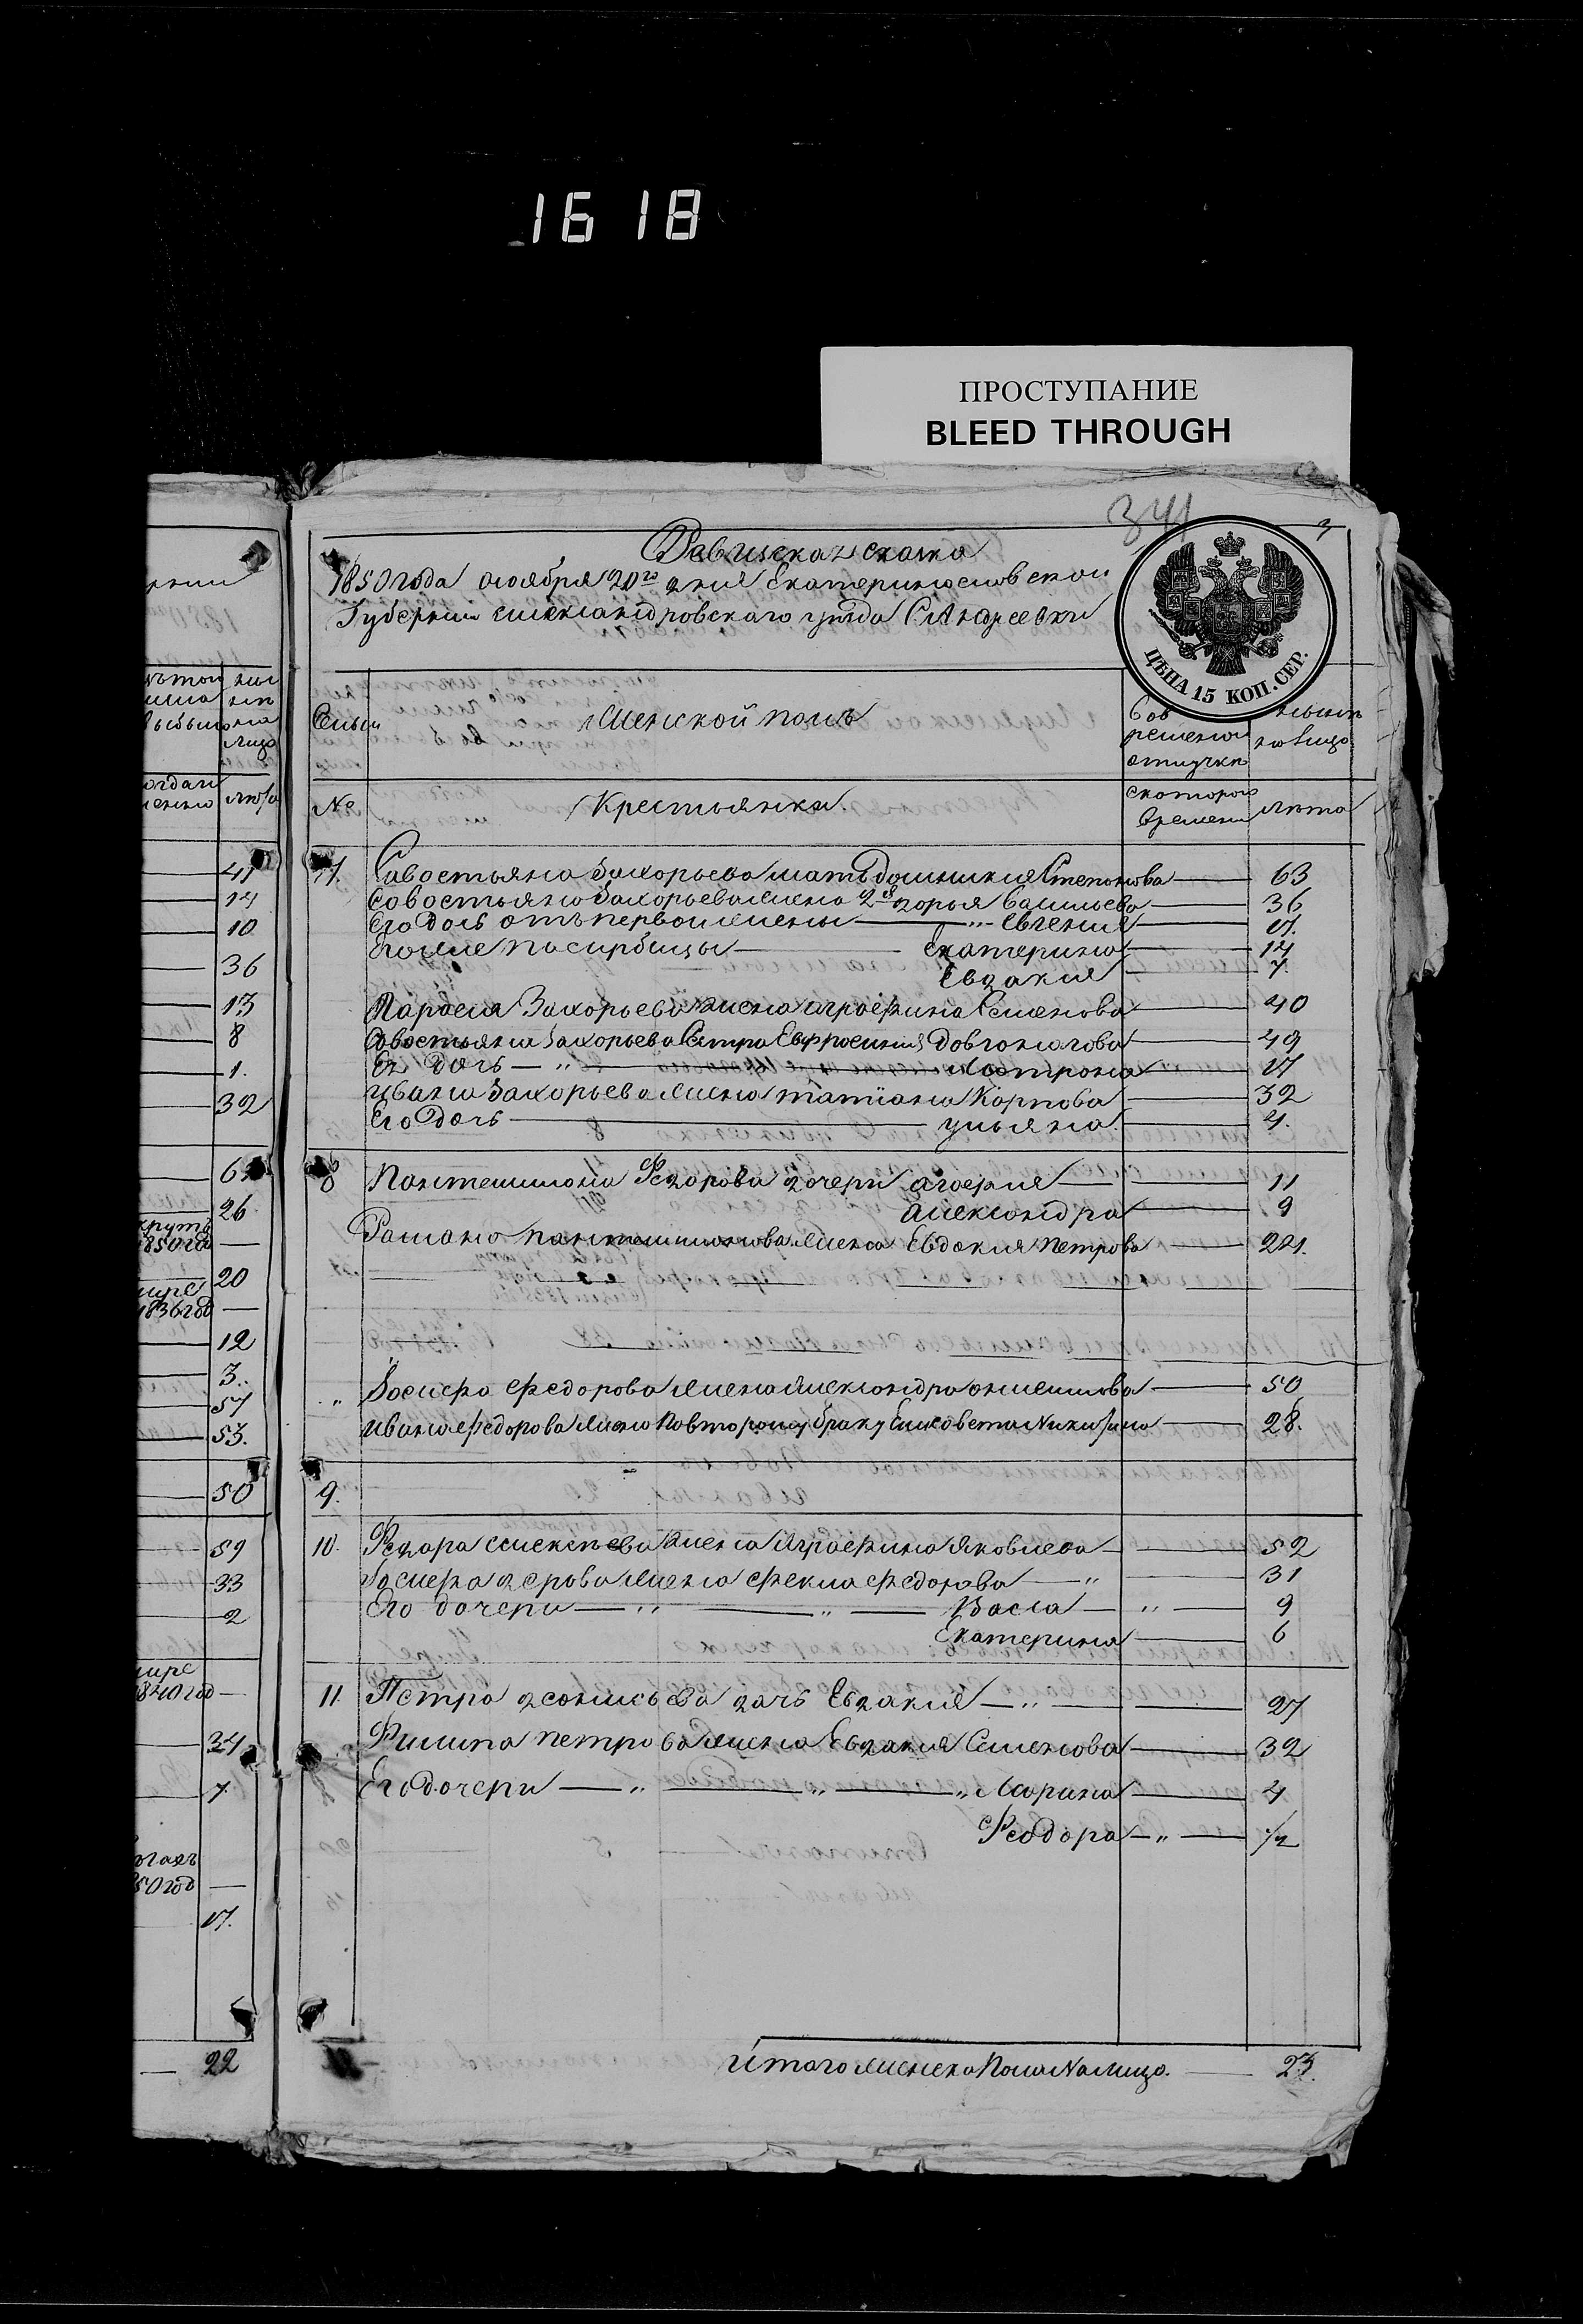 1618
ПРОСТУПАНИЕ
BLEED THROUGH
341
3
Ревизская сказка
1850 года октября 20го дня Екатеринославской
Губернии Александровскаго уѣзда С. Андреевки
ЦѢНА 15 КОП. СЕР.
Семьи
Женской полъ
Во временной отлучкѣ
нынѣ на лицо
№
Крестьянки.
с котораго времени
лѣта
7. Савостьяна Захарьева мать Домникия Степанова 63
Савостьяна Захарьева жена 2я Дарья Васильева 36
Его дочь отъ первой жены Евгения 17.
Екатерина 14
Евдакия 7.
Тарасия Захарьева жена Аграфина Семенова 40
Савостьяна Захарьева сестра Евфросиния Довгоногова 49
Ея дочь Матрона 17
Ивана Захарьева жена Татиана Карпова 32
Его дочь Ульяна. 4.
8 Пантелимона Федорова дочери Агафия 11
Александра 9
Рамана Пантелимонова жена Евдокия Петрова 21.
Иосифа Федорова жена Александра 50
Ивана Федорова жена по второму браку Елисовета Никифорова 28.
9.
10. Федара Алексеева жена Аграфина Яковлева 52
Иосифа Федорова жена Фекла Федорова 31
Его дочери Васса 9
Екатерина 6
11. Петра Денисьева дочь Евдакия 27
Филипа Петрова жена Евдакия Семенова 32
Его дочери Марина 4
Феодора 1/2
Итого женска пола на лицо. 23.
41
14
10
36
13
8
1.
32
26
1850 год
20
1836 год
12
3.
57
53.
50
59
33
2
1840 год
34
7.
17.
22